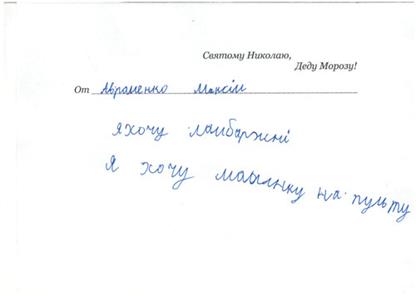 Святому Николаю,
Деду Морозу!
От Авраменко Максім
я хочу ламбаржні
Я хочу машынку на пульту